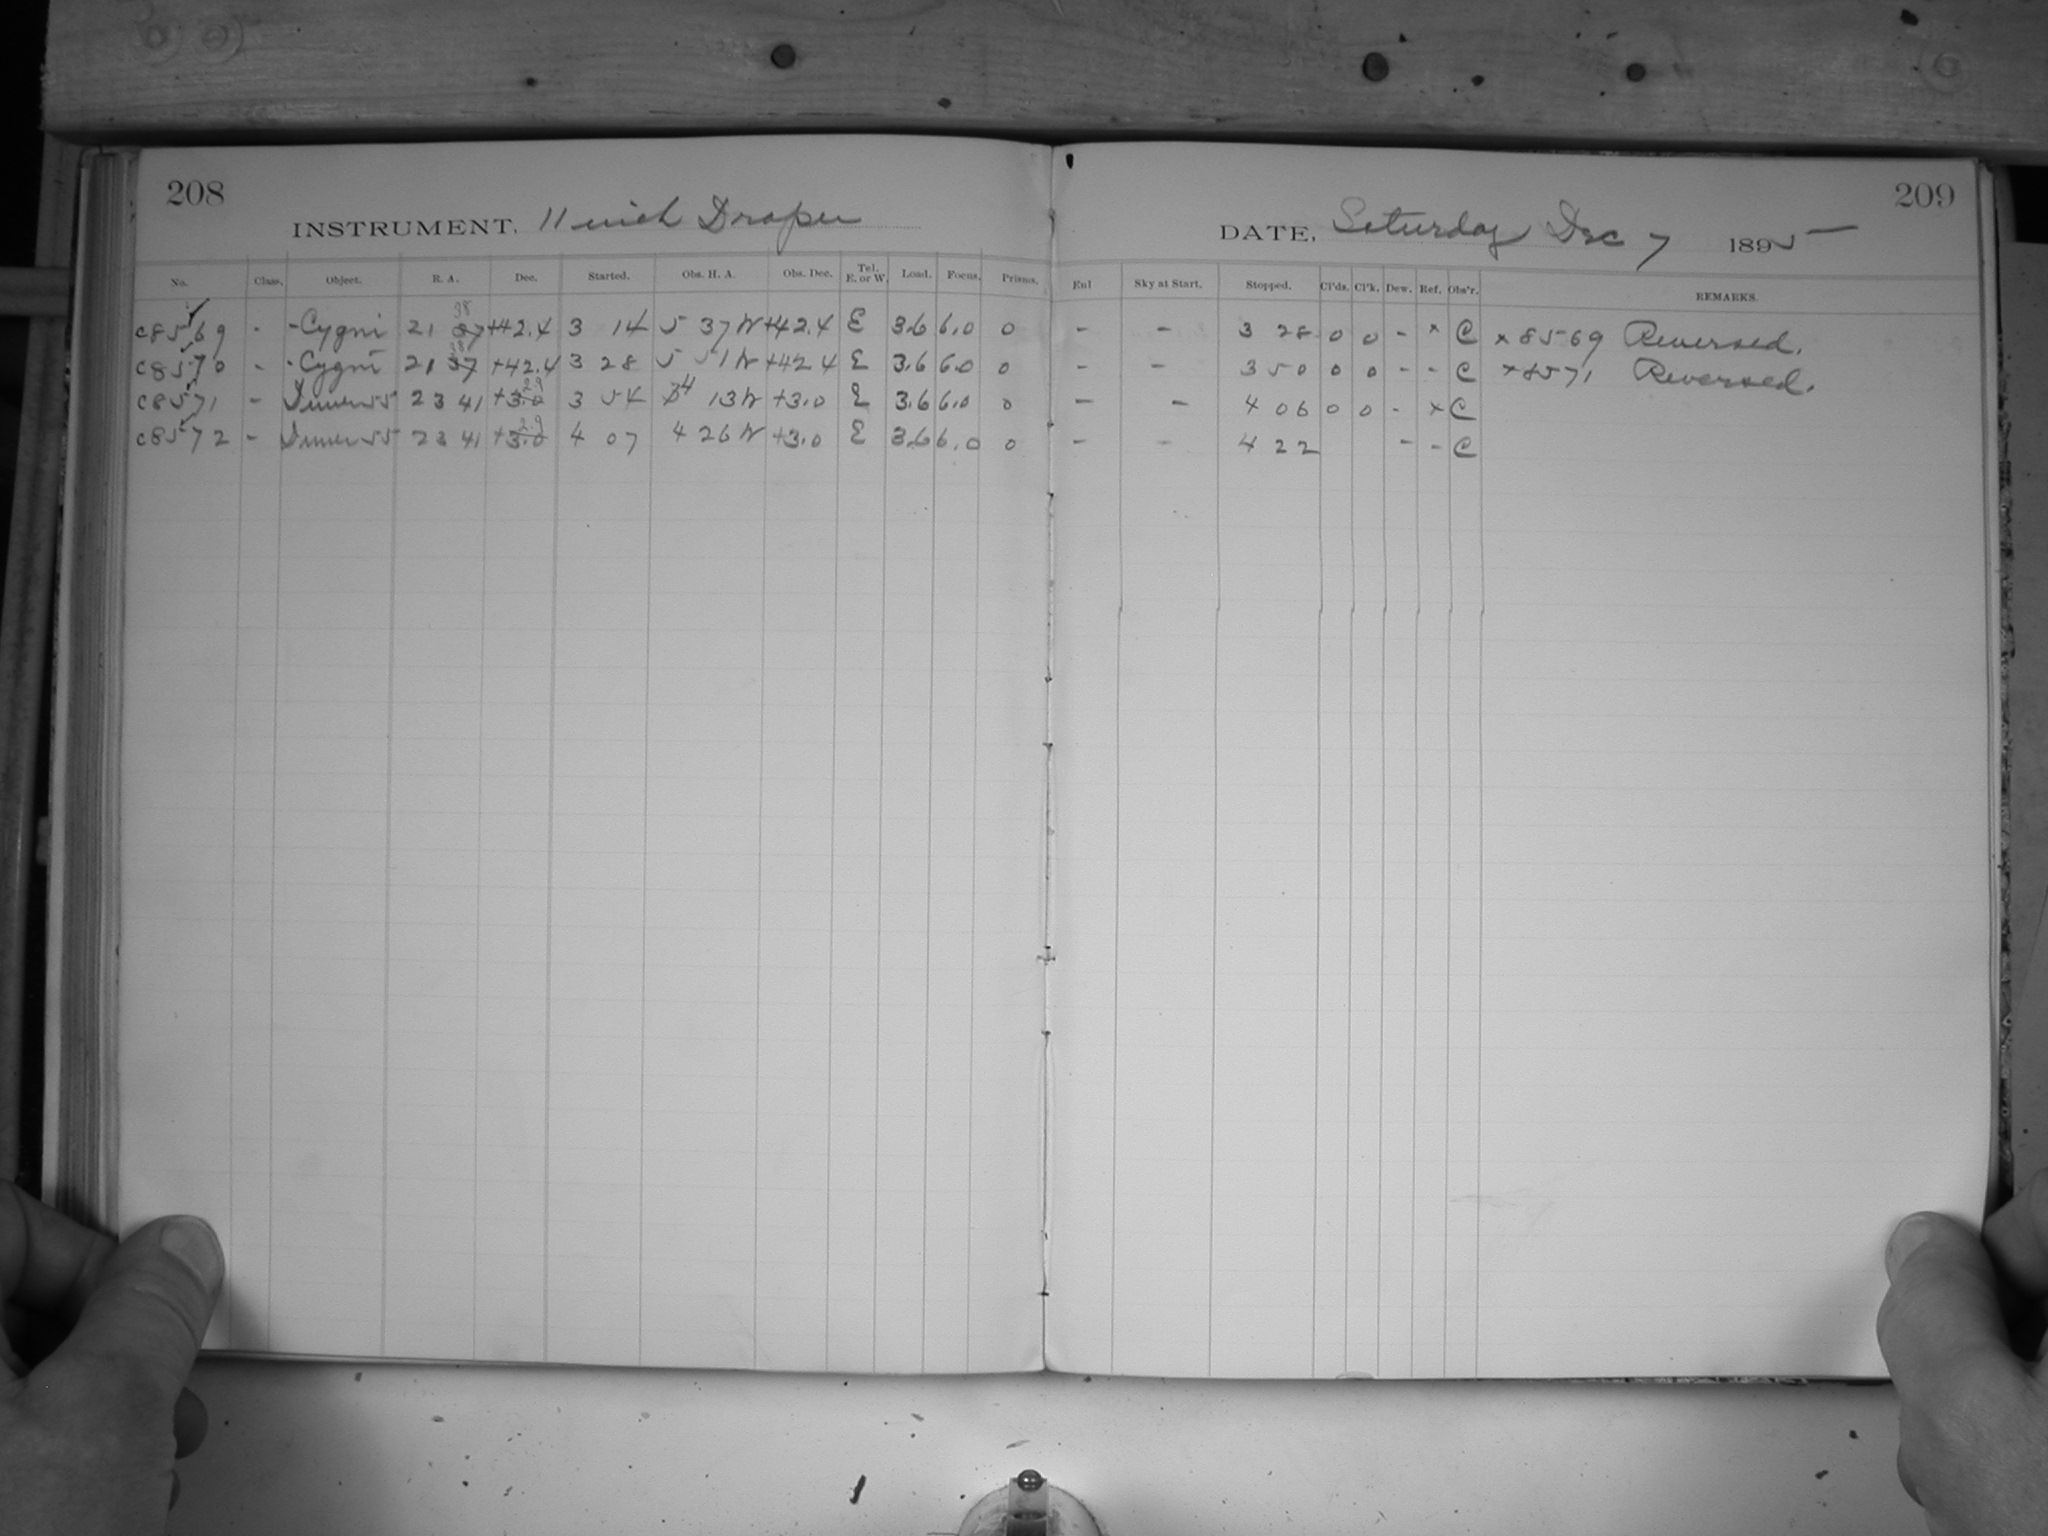 208
INSTRUMENT, 11 inch Draper
No. Class. Object. R. A. Dec. Started. Obs. H. A. Obs. Dec. Tel. E. or W. Load. Focus. Prisms.
38
c8569 - - Cygni 21 37 +42.4 3 14 5 37 W +42.4 E 3.6 6.0 0
38
c8570 - - Cygni 21 37 +42.4 3 28 5 51 W +42.4 E 3.6 6.0 0
2.9
c8571 - 55 23 41 +3.0 3 54 4 13 W +3.0 E 3.6 6.0 0
2.9
c8572 - 55 23 41 +3.0 4 07 4 26 W +3.0 E 3.6 6.0 0
209
DATE, Saturday Dec 7 1895
Enl Sky at Start. Stopped. Cl'ds. Cl'k. Dew. Ref. Obs'r. REMARKS.
- - 3 28 0 0 - x C x 8569 Reversed.
- - 3 50 0 0 - - C x 8571 Reversed.
- - 4 06 0 0 - x C
- - 4 22 - - C